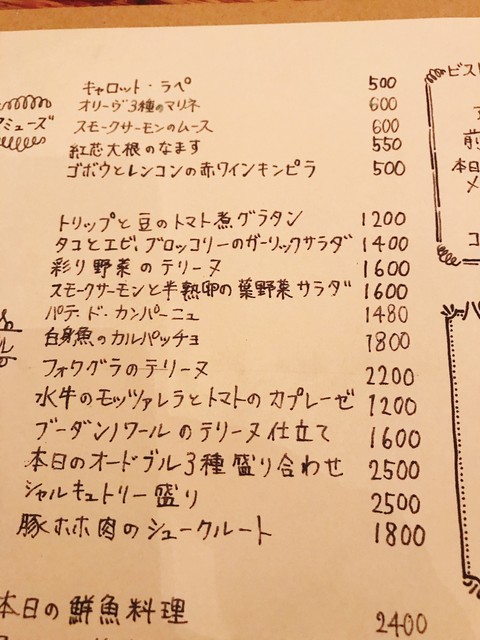 キャロット・ラペ 500
オリーヴ3種のマリネ 600
アミューズ
スモークサーモンのムース 600
紅芯大根のなます 550
ゴボウとレンコンの赤ワインキンピラ 500
トリップと豆のトマト煮グラタン 1200
タコとエビ、ブロッコリーのガーリックサラダ 1400
彩り野菜のテリーヌ 1600
スモークサーモンと半熟卵の葉野菜サラダ 1600
パテ・ド・カンパーニュ 1480
白身魚のカルパッチョ 1800
フォワグラのテリーヌ 2200
水牛のモッツァレラとトマトのカプレーゼ 1200
ブーダンノワールのテリーヌ仕立て 1600
本日のオードブル3種盛り合わせ 2500
シャルキュトリー盛り 2500
豚ホホ肉のシュークルート 1800
本日の鮮魚料理 2400
ビスト
前
本日
メ
コ